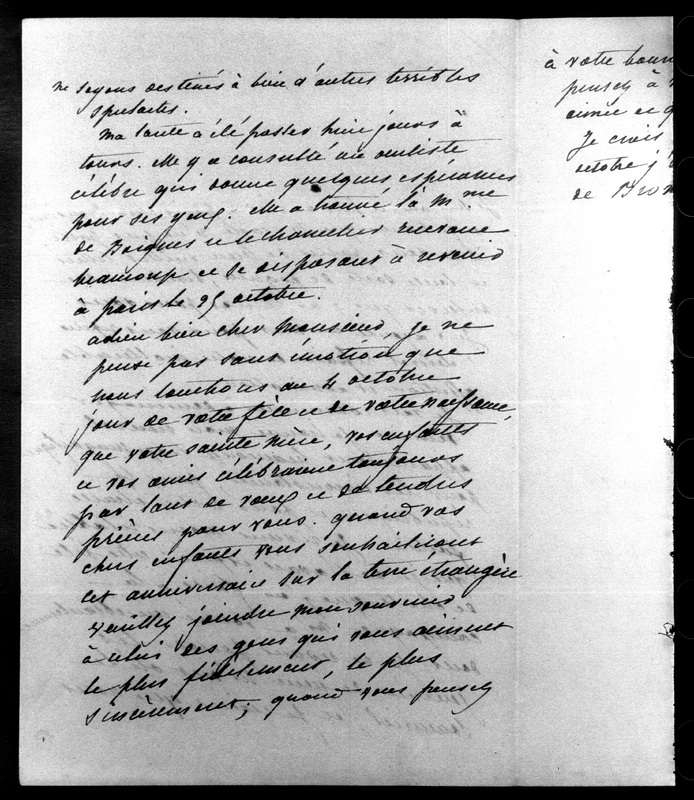 ne soyons destinés à bien d'autres terribles
spectacles.
Ma tante a été passer huit jours à
tours. Elle y a consulté un oculiste
célèbre qui donne quelques espérances
pour ses yeux. Elle a trouvé là Mme
de Boignes et le chancelier
beaucoup et se disposant à revenir
à paris le 25 octobre.
adieu bien cher Monsieur, je ne
pense pas sans émotion que
nous touchons au 4 octobre
jour de votre fête et de votre naissance,
que votre sainte mère, vos enfants
et vos amis célébraient toujours
par tant de vœux et de tendres
prières pour vous. quand vos
chers enfants vous souhaiteront
cet anniversaire sur la terre étrangère
veuillez joindre mon souvenir
à celui des gens qui vous aiment
le plus fidèlement, le plus
sincèrement; quand vous pensez
à votre bonn
pensez à
aimée et q
Je crois
octobre j'
de Bro